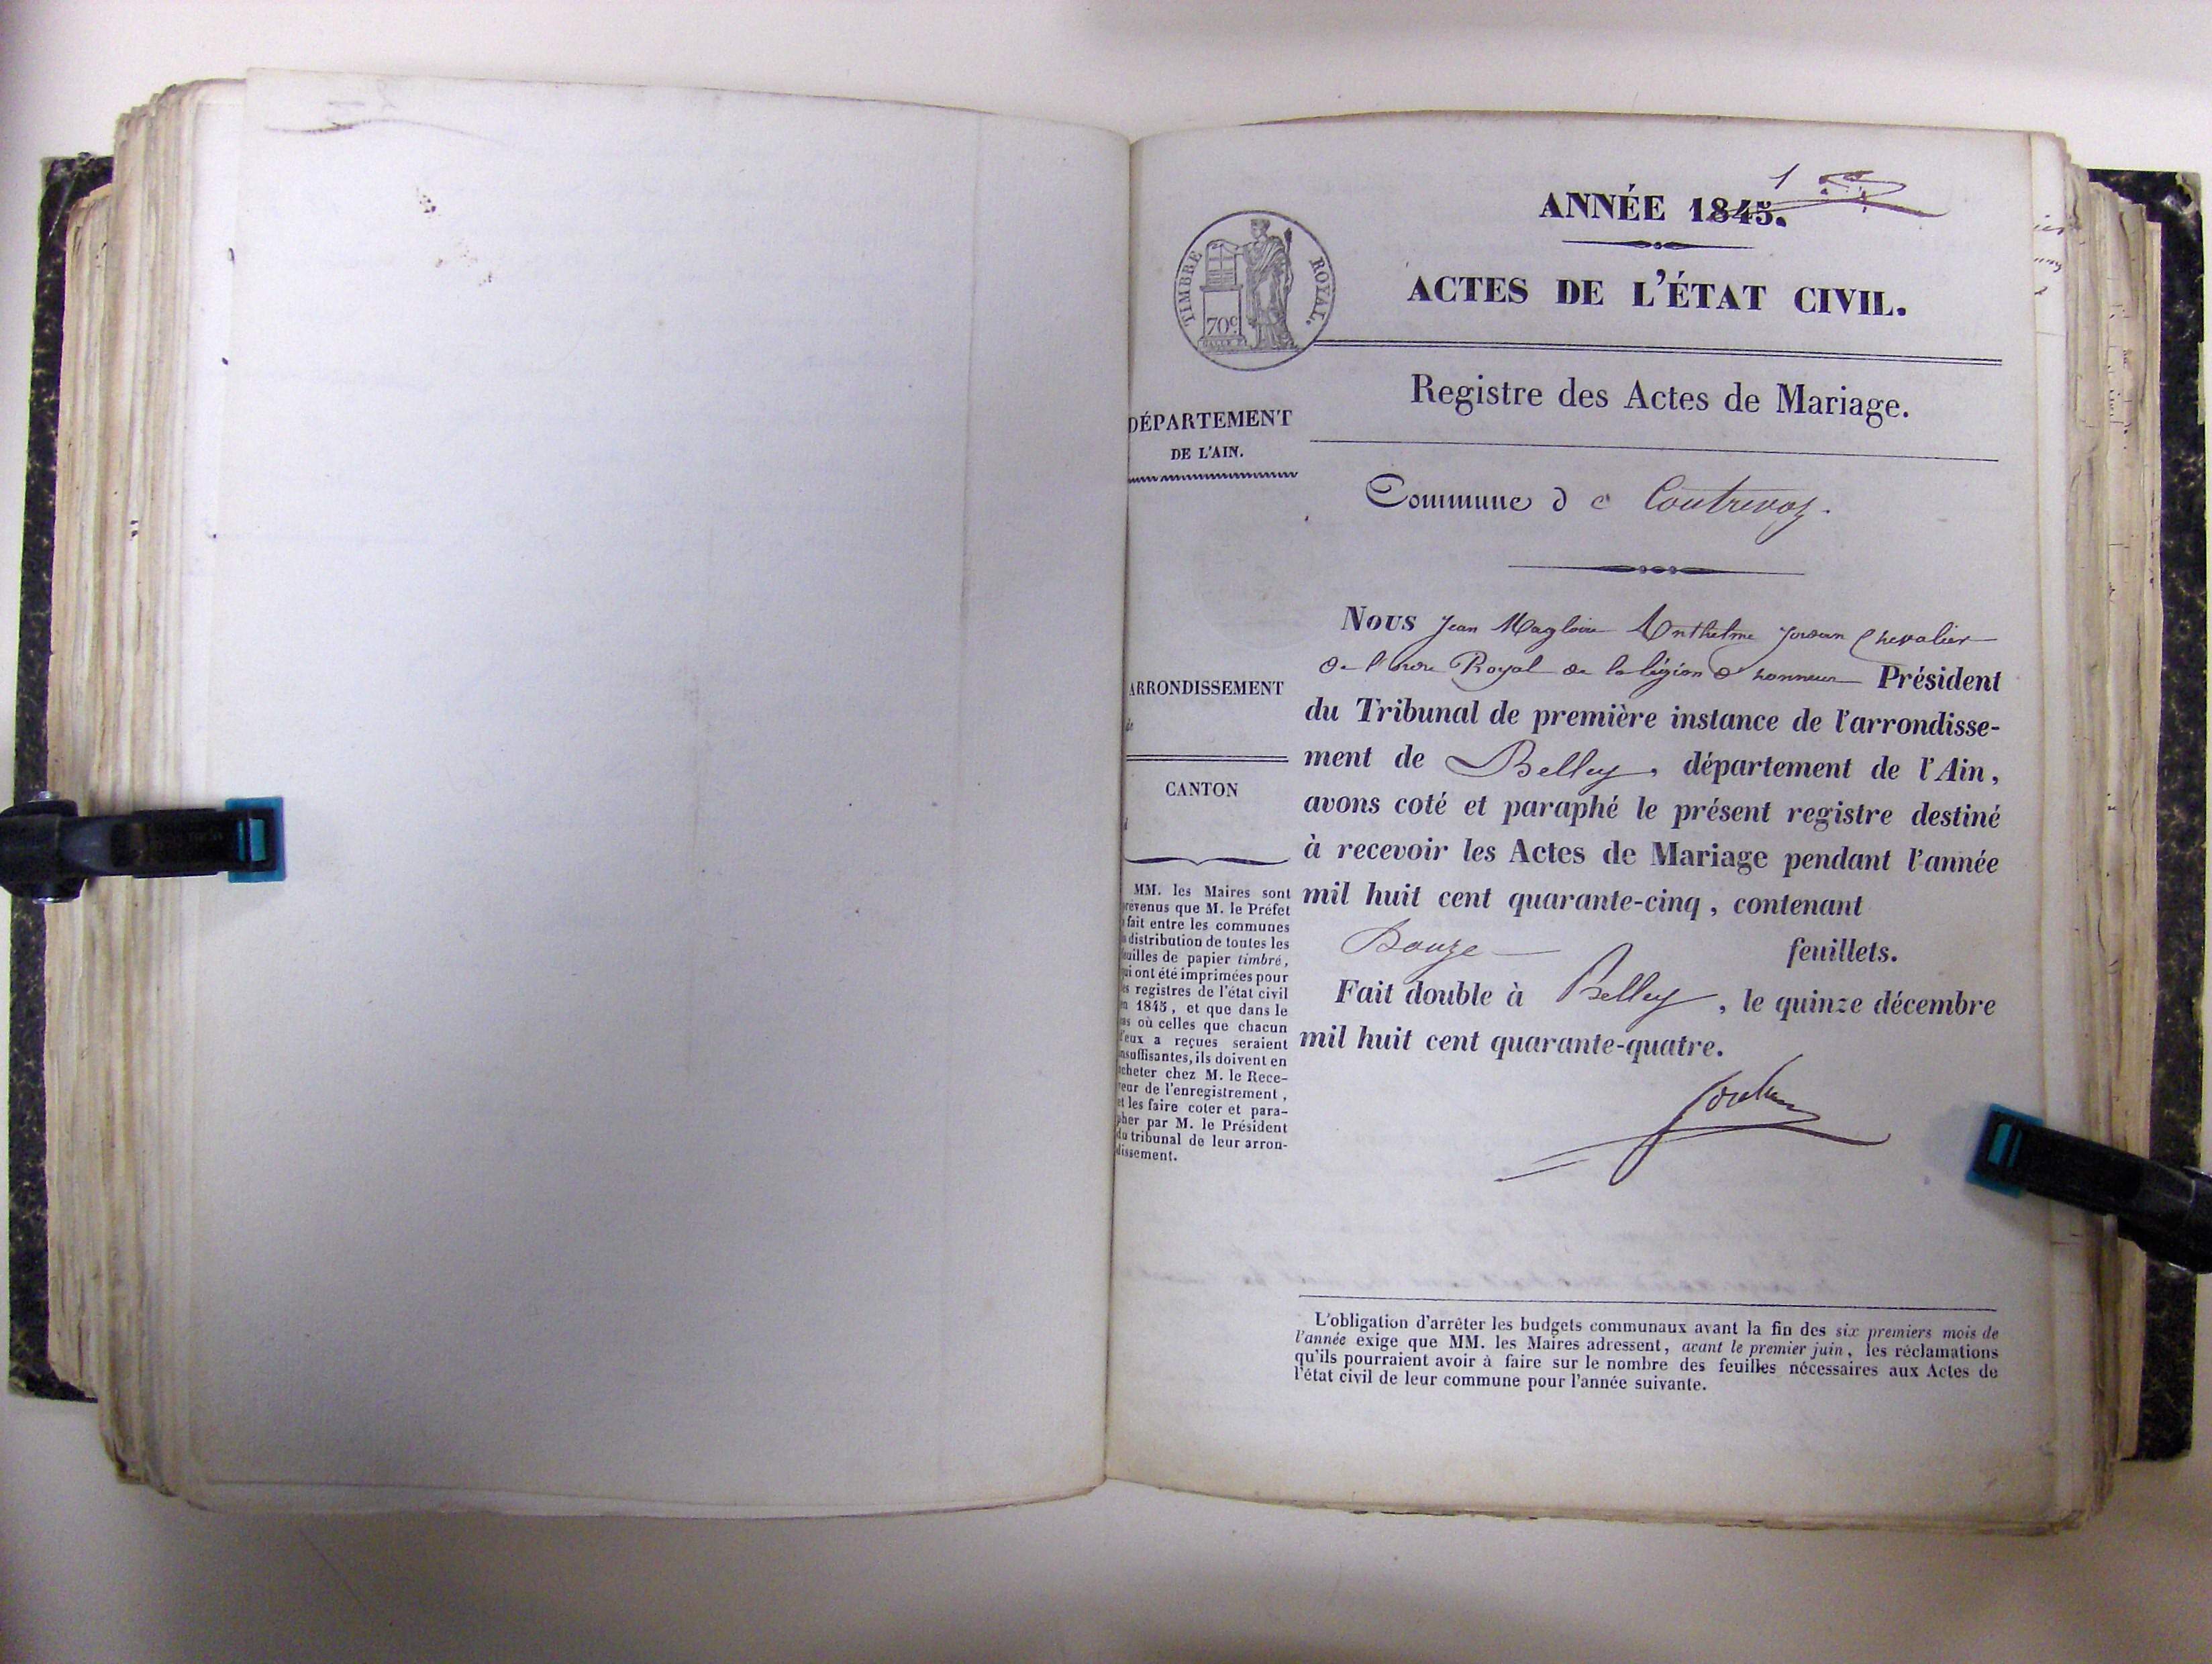 1
ANNÉE 1845.
TIMBRE ROYAL.
70c
ACTES DE L'ÉTAT CIVIL.
Registre des Actes de Mariage.
DÉPARTEMENT
DE L'AIN.
Commune de Contrevoz.
Nous Jean Magloire Anthelme Jordan Chevalier
de l'ordre Royal de la légion d'honneur Président
du Tribunal de première instance de l'arrondisse-
ment de Belley, département de l'Ain,
avons coté et paraphé le présent registre destiné
à recevoir les Actes de Mariage pendant l'année
mil huit cent quarante-cinq, contenant
Douze feuillets.
Fait double à Belley, le quinze décembre
mil huit cent quarante-quatre.
Jordan
ARRONDISSEMENT
de
CANTON
MM. les Maires sont
prévenus que M. le Préfet
a fait entre les communes
la distribution de toutes les
feuilles de papier timbré,
qui ont été imprimées pour
les registres de l'état civil
en 1845, et que dans le
cas où celles que chacun
d'eux a reçues seraient
insuffisantes, ils doivent en
acheter chez M. le Rece-
veur de l'enregistrement,
et les faire coter et para-
pher par M. le Président
du tribunal de leur arron-
dissement.
L'obligation d'arrêter les budgets communaux avant la fin des six premiers mois de
l'année exige que MM. les Maires adressent, avant le premier juin, les réclamations
qu'ils pourraient avoir à faire sur le nombre des feuilles nécessaires aux Actes de
l'état civil de leur commune pour l'année suivante.